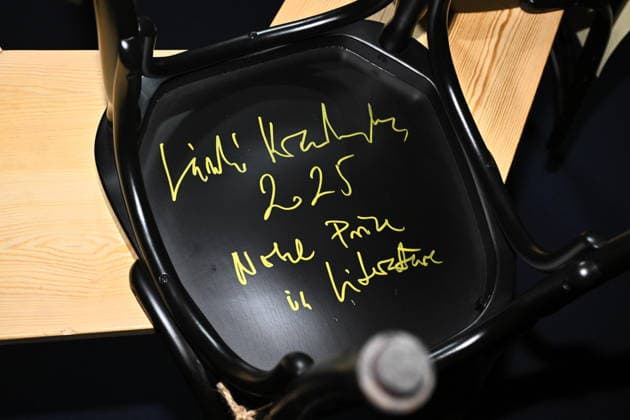 László Krasznahorkai
2025
Nobel Prize
in Literature